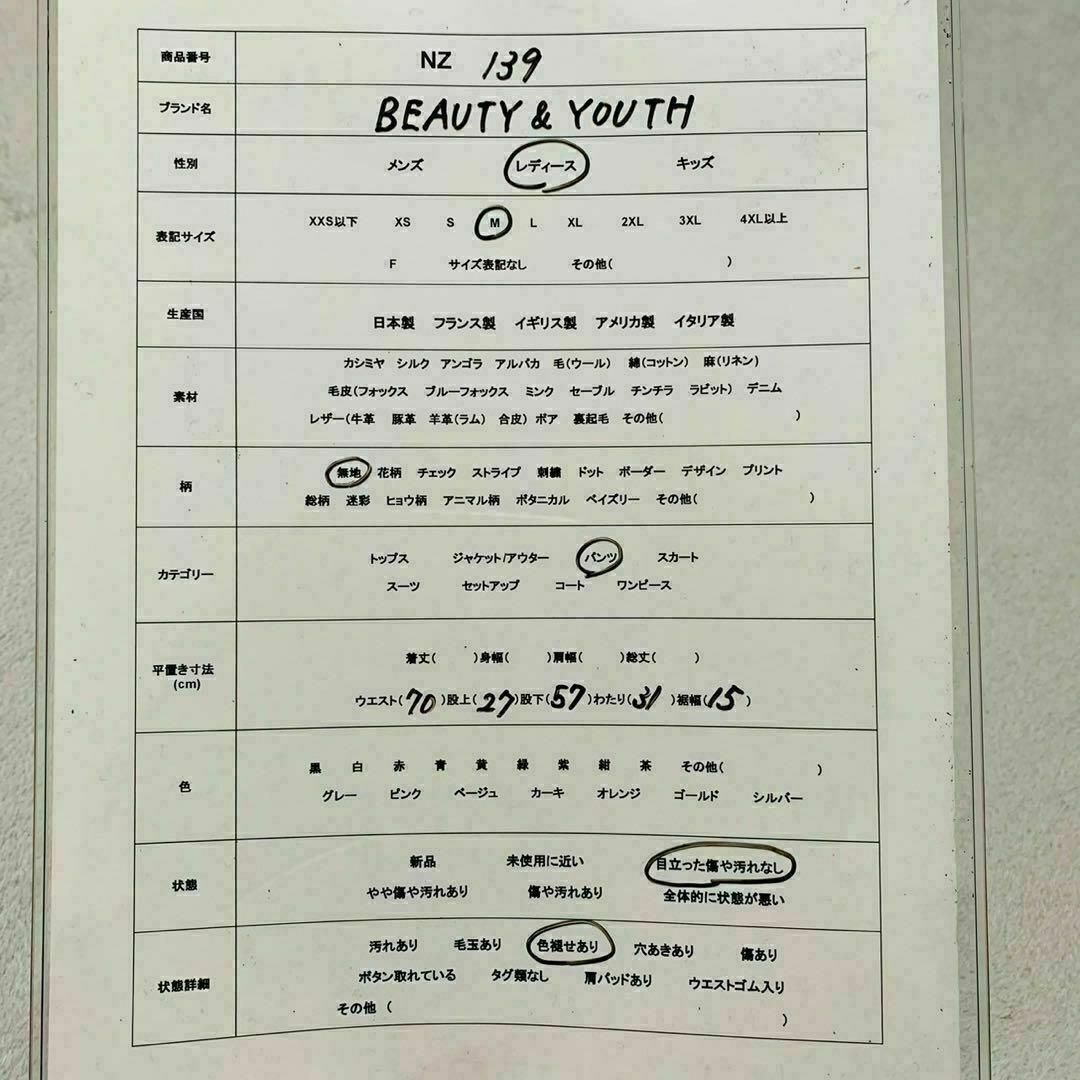 商品番号 NZ 139
ブランド名 BEAUTY & YOUTH
性別 メンズ レディース キッズ
XXS以下 XS S M L XL 2XL 3XL 4XL以上
表記サイズ
F サイズ表記なし その他( )
生産国 日本製 フランス製 イギリス製 アメリカ製 イタリア製
カシミヤ シルク アンゴラ アルパカ 毛(ウール) 綿(コットン) 麻(リネン)
素材 毛皮(フォックス ブルーフォックス ミンク セーブル チンチラ ラビット) デニム
レザー(牛革 豚革 羊革(ラム) 合皮) ボア 裏起毛 その他( )
無地 花柄 チェック ストライプ 刺繍 ドット ボーダー デザイン プリント
柄
総柄 迷彩 ヒョウ柄 アニマル柄 ボタニカル ペイズリー その他( )
トップス ジャケット/アウター パンツ スカート
カテゴリー
スーツ セットアップ コート ワンピース
着丈( )身幅( )肩幅( )総丈( )
平置き寸法
(cm)
ウエスト(70)股上(27)股下(57)わたり(31)裾幅(15)
黒 白 赤 青 黄 緑 紫 紺 茶 その他( )
色
グレー ピンク ベージュ カーキ オレンジ ゴールド シルバー
新品 未使用に近い 目立った傷や汚れなし
状態
やや傷や汚れあり 傷や汚れあり 全体的に状態が悪い
汚れあり 毛玉あり 色褪せあり 穴あきあり 傷あり
状態詳細 ボタン取れている タグ類なし 肩パッドあり ウエストゴム入り
その他 ( )